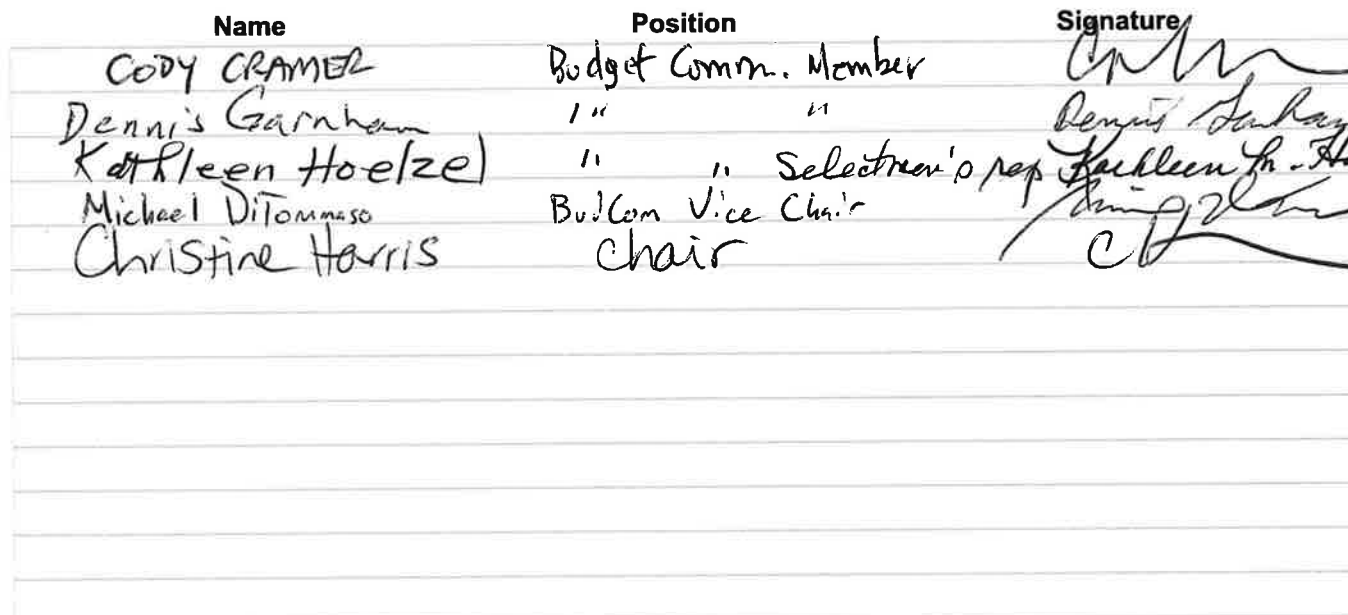 Name Position Signature
CODY CRAMER Budget Comm. Member
Dennis Garnham " " Dennis
Kathleen Hoelzel " " Selectmen's rep Kathleen M. Ho
Michael DiTommaso BudCom Vice Chair
Christine Harris Chair CH